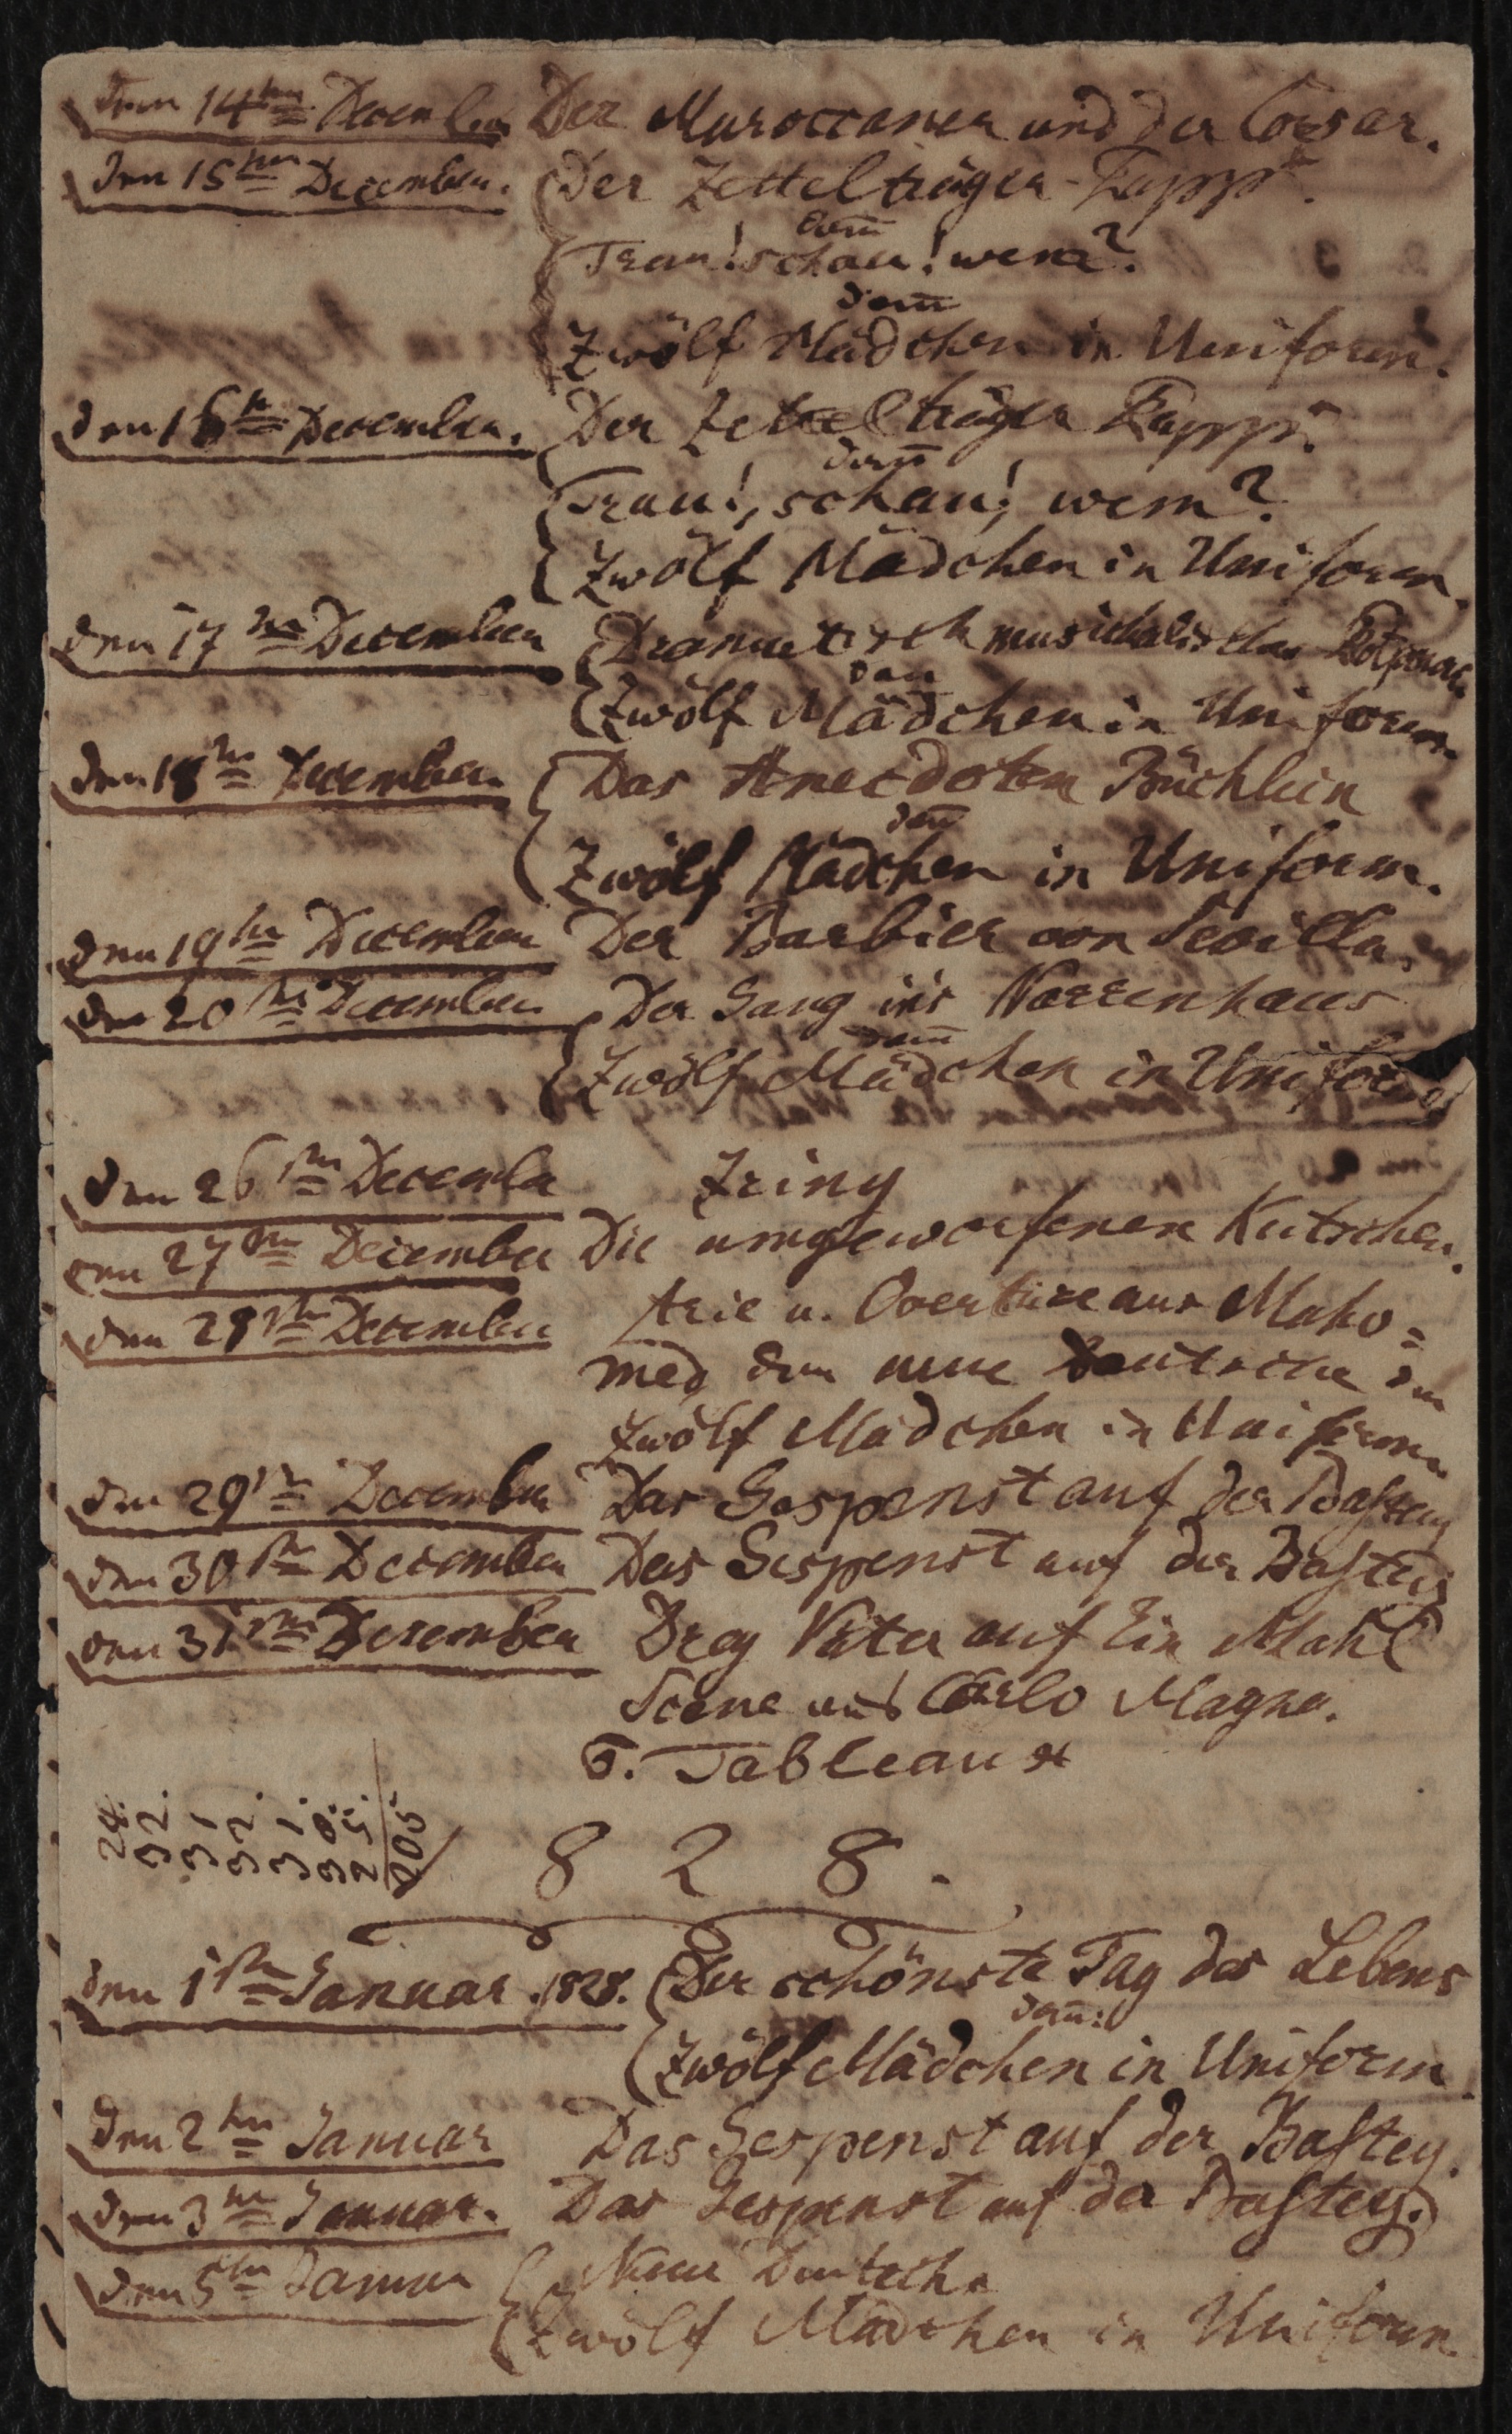 den 14ten December Der Maroccaner und der Corsar.
den 15ten December. Der Zettelträger Papp.
dann
Trau! schau! wem?
dann
Zwölf Mädchen in Uniform.
den 16n December. Der Zettelträger Papp.
dann
Trau!, schau!, wem?
Zwölf Mädchen in Uniform.
den 17ten December Dramatisch musikalisches
dan
Zwölf Mädchen in Uniform.
den 18ten December Das Anecdoten Büchlein
dann
Zwölf Mädchen in Uniform.
den 19ten December Der Barbier von Sevilla.
den 20ten December Der Gang in's Narrenhaus
dann
Zwölf Mädchen in Uniform
den 26ten December Zriny
den 27ten December Die umgeworfenen Kutschen.
den 28ten December Arie u. Overtüre aus Maho=
med dan neue Deutsche
Zwölf Mädchen in Uniform
den 29ten December Das Gespenst auf der Bastey
den 30ten December Das Gespenst auf der Bastey
den 31ten December Drey Väter auf Ein Mahl
Scene aus Carlo Magno.
Tableaux
24.
32.
31
32.
31.
30.
25.
205
1 8 2 8.
den 1ten Januar. 1828. Der schönste Tag des Lebens
dann:
Zwölf Mädchen in Uniform.
den 2ten Januar Das Gespenst auf der Bastey.
den 3ten Januar. Das Gespenst auf der Bastey.
den 5ten Januar Neue Deutsche
Zwölf Mädchen in Uniform.